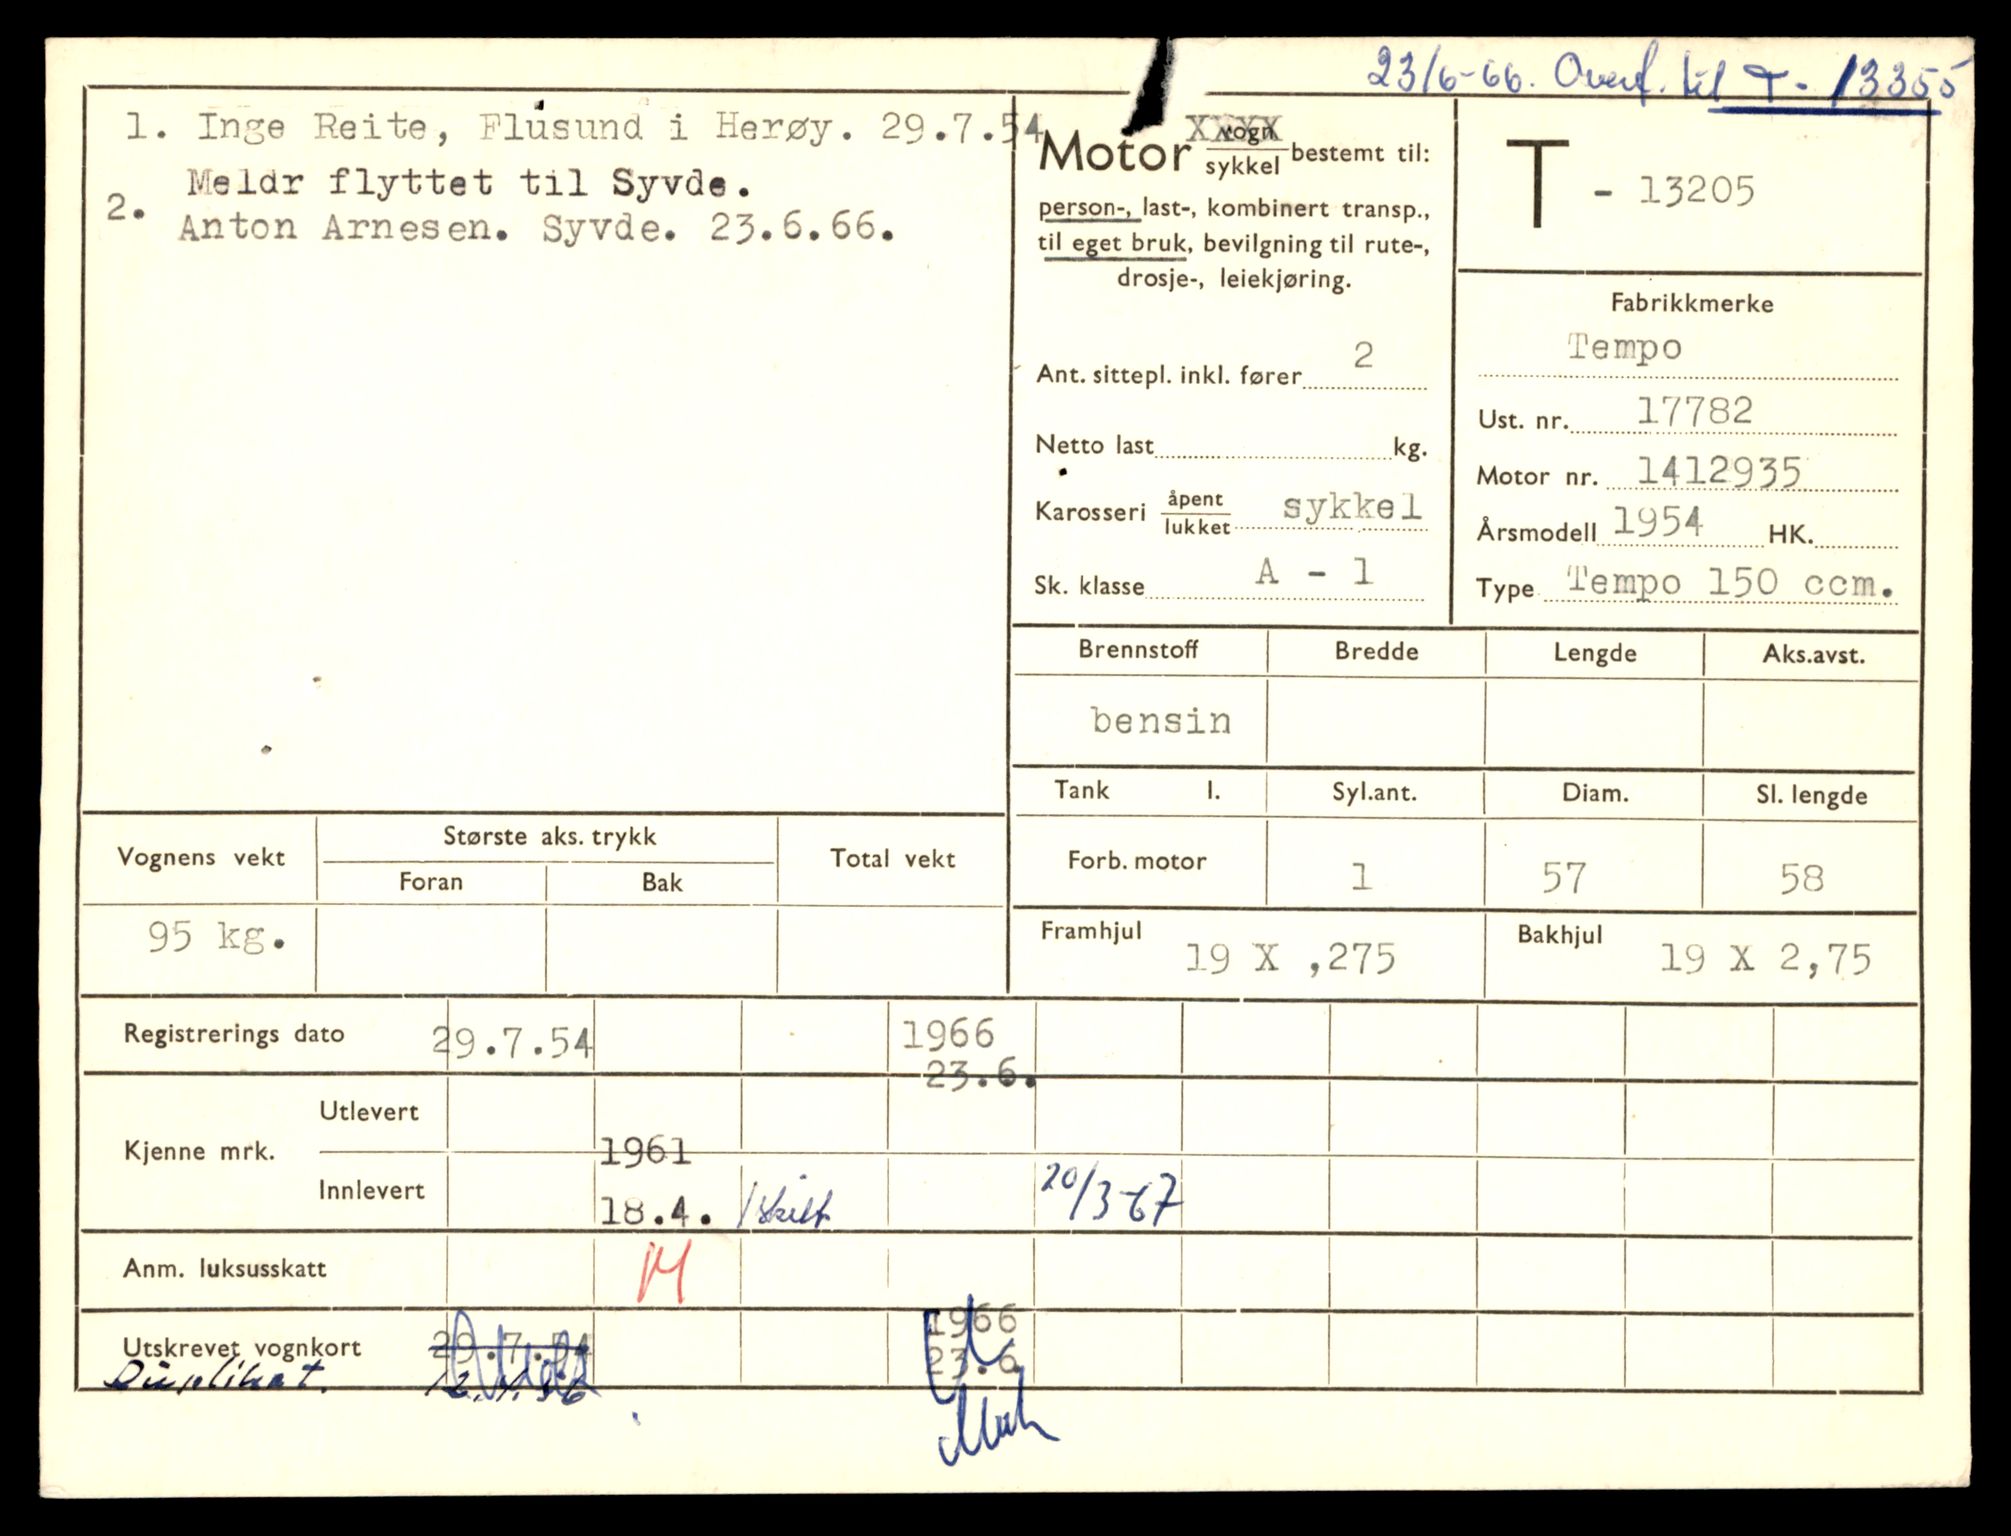 23/6-66. Overf. til T- 13355
1. Inge Reite, Flusund i Herøy. 29.7.54
Meldr flyttet til Syvde.
2. Anton Arnesen. Syvde. 23.6.66.
Motor vogn/sykkel bestemt til:
person-, last-, kombinert transp.,
til eget bruk, bevilgning til rute-,
drosje-, leiekjøring.
Ant. sittepl. inkl. fører 2
Netto last kg.
Karosseri åpent/lukket sykkel
Sk. klasse A - 1
T - 13205
Fabrikkmerke
Tempo
Ust. nr. 17782
Motor nr. 1412935
Årsmodell 1954 HK.
Type Tempo 150 ccm.
Brennstoff Bredde Lengde Aks.avst.
bensin
Tank l. Syl.ant. Diam. Sl. lengde
Forb. motor 1 57 58
Framhjul 19 X ,275 Bakhjul 19 X 2,75
Vognens vekt Største aks. trykk Total vekt
Foran Bak
95 kg.
Registrerings dato 29.7.54 1966
23.6.
Kjenne mrk. Utlevert
1961
Innlevert 18.4. 1 skilt 20/3-67
Anm. luksusskatt M
Utskrevet vognkort 29.7.54 1966
23.6
Duplikat.